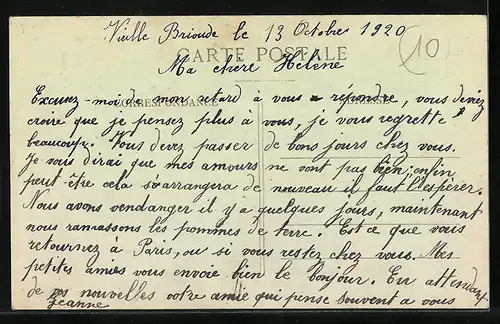 Vieille Brioude le 13 Octobre 1920
10
CARTE POSTALE
Ma chere Helene
CORRESPONDANCE
Excusez-moi de mon retard à vous répondre, vous deviez
croire que je pensez plus à vous, je vous regrette
beaucoup. Vous devez passer de bons jours chez vous.
Je vous dirai que mes amours ne vont pas bien, enfin
peut-être cela s'arrangera de nouveau il faut l'esperer.
Nous avons vendanger il y a quelques jours, maintenant
nous ramassons les pommes de terre. Est ce que vous
retournez à Paris, ou si vous restez chez vous. Mes
petites amies vous envoie bien le bonjour. En attendant
de vos nouvelles votre amie qui pense souvent a vous
Jeanne